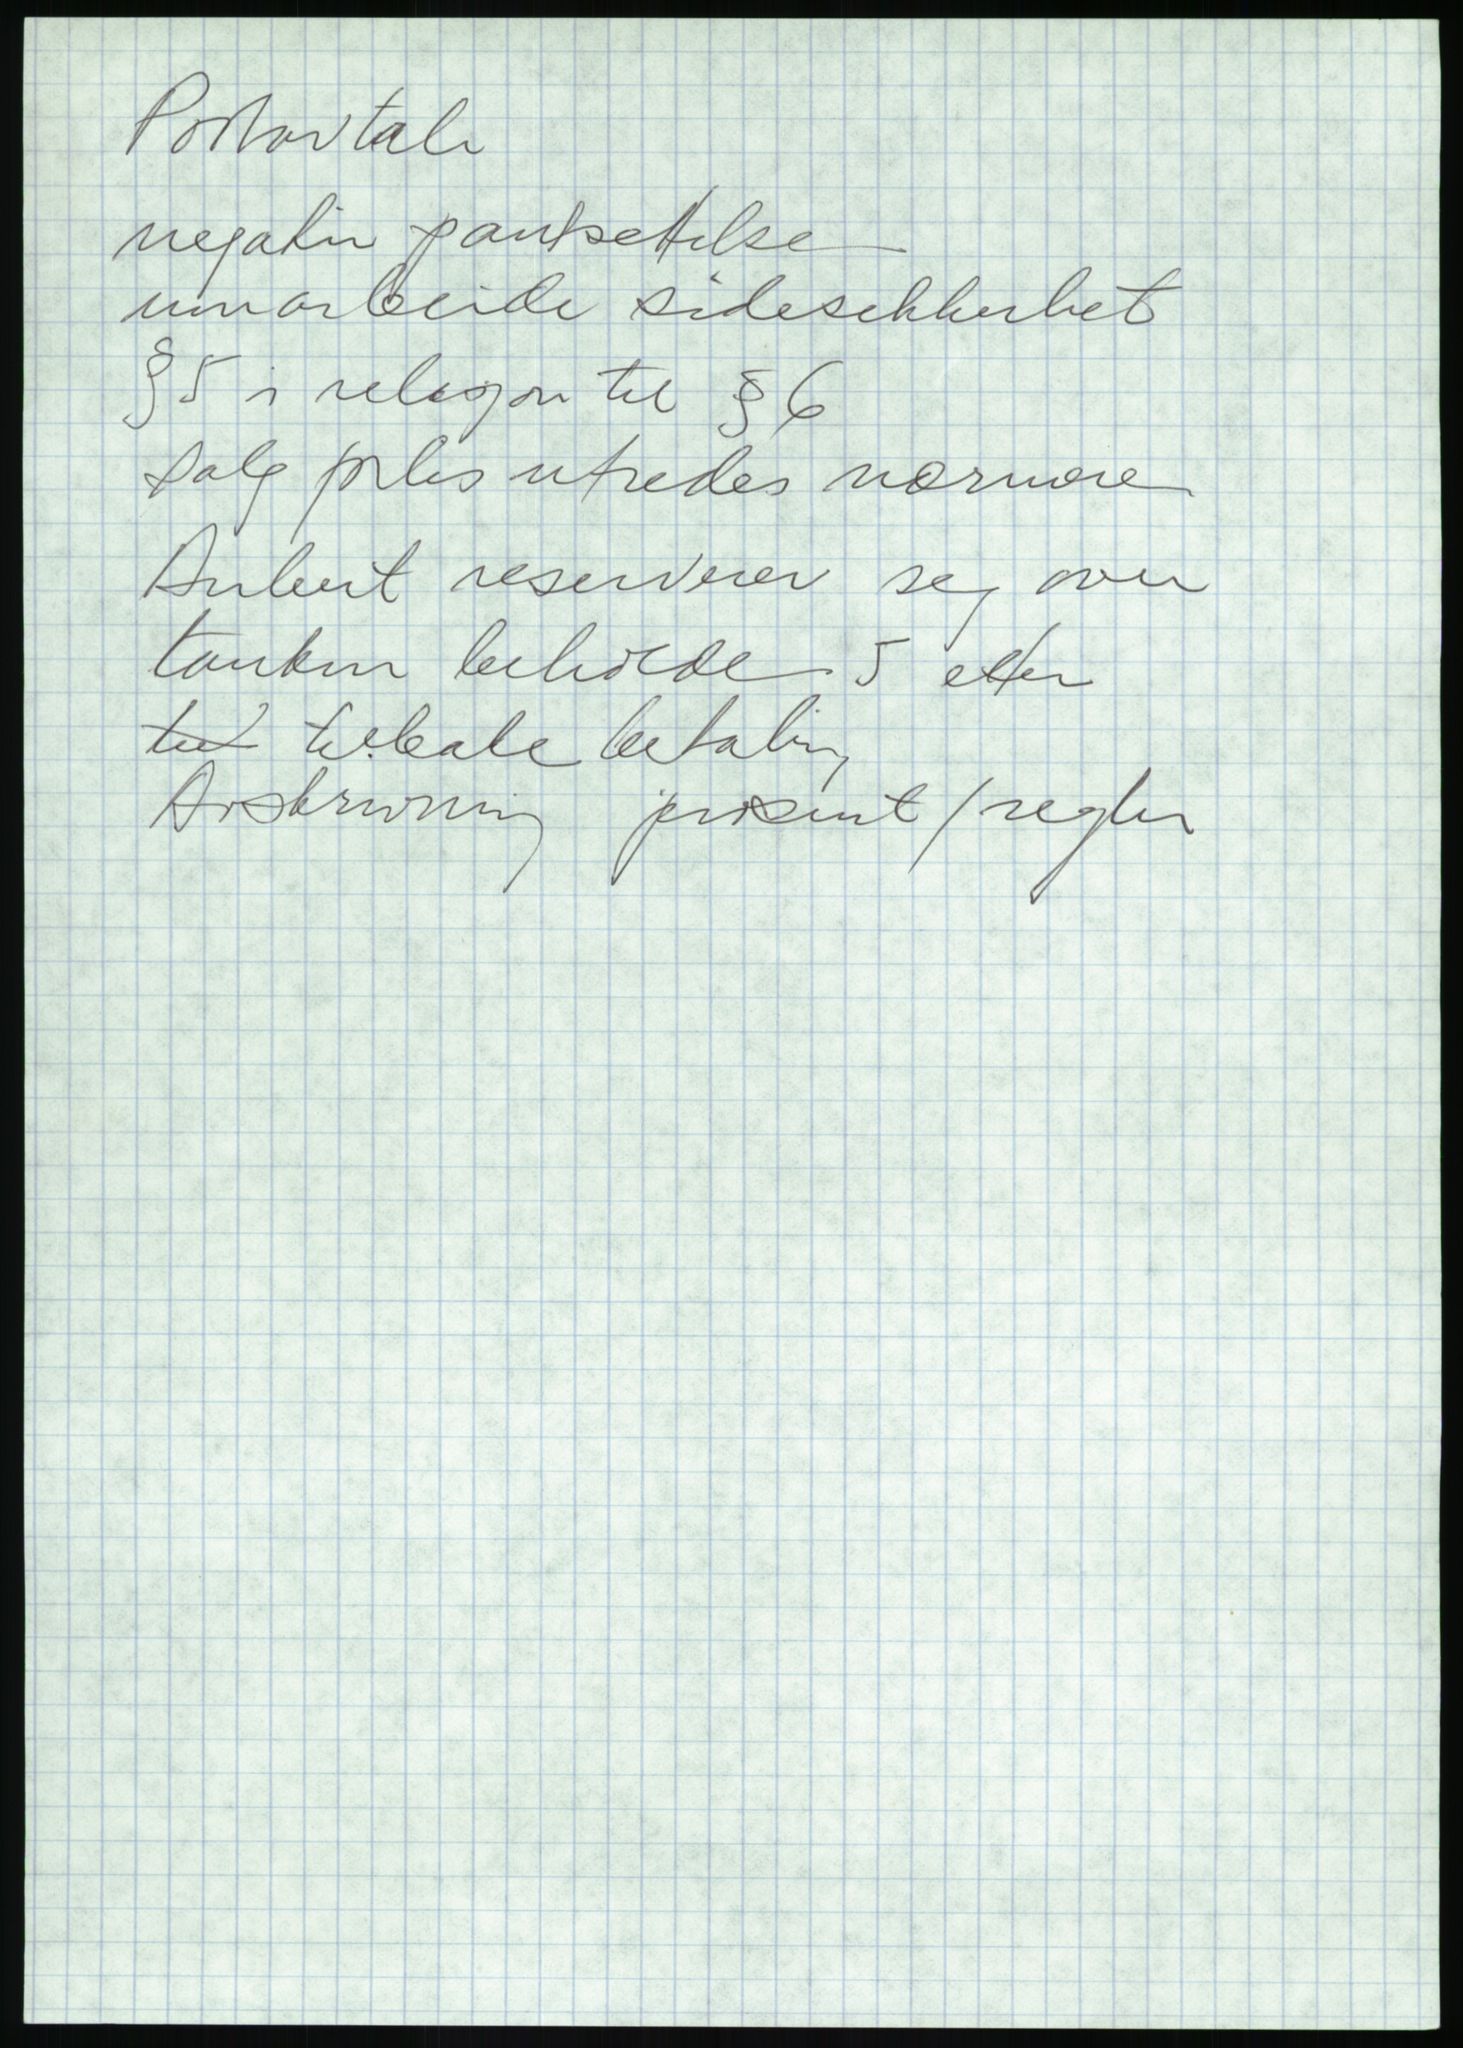 Postavtale
negativ pantsettelse
innarbeide sidesikkerhet
§ 5 i relasjon til § 6
salg utredes nærmere
Aubert reserverer seg over
tanken beholde 5 etter
til tilbake betaling
Avskrivning prosent / regler